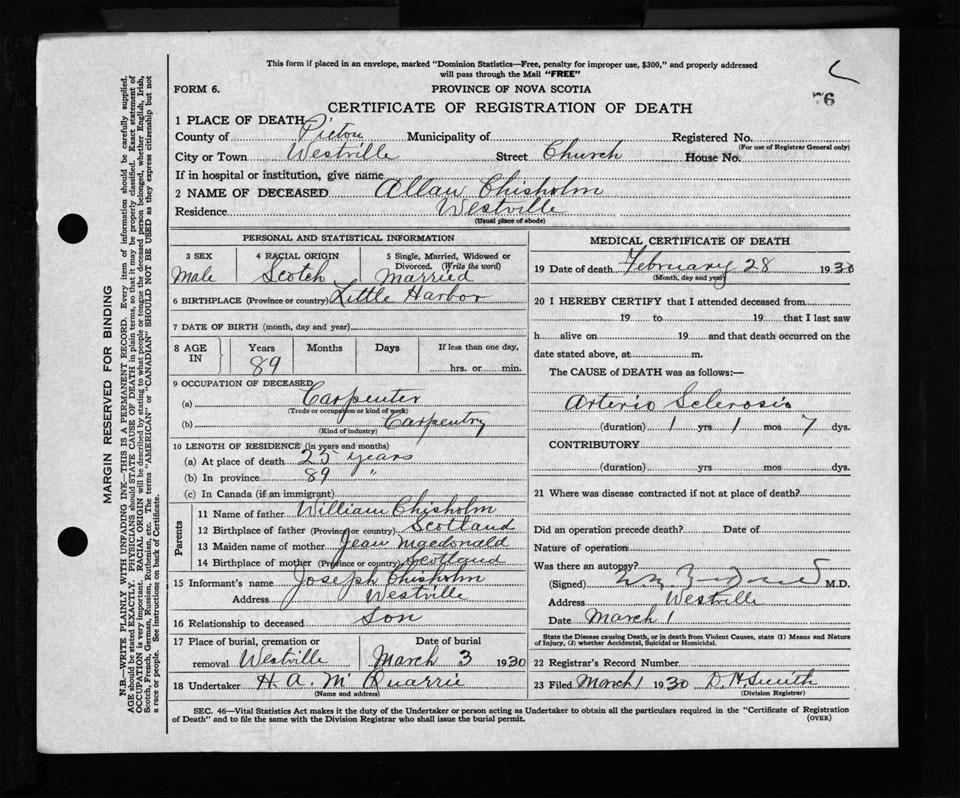 This form if placed in an envelope, marked "Dominion Statistics—Free, penalty for improper use, $300," and properly addressed
will pass through the Mail "FREE"
FORM 6. PROVINCE OF NOVA SCOTIA
76
CERTIFICATE OF REGISTRATION OF DEATH
1 PLACE OF DEATH
County of Pictou Municipality of Registered No.
(For use of Registrar General only)
City or Town Westville Street Church House No.
If in hospital or institution, give name
2 NAME OF DECEASED Allan Chisholm
Residence Westville
(Usual place of abode)
PERSONAL AND STATISTICAL INFORMATION
3 SEX 4 RACIAL ORIGIN 5 Single, Married, Widowed or
Divorced. (Write the word)
Male Scotch Married
6 BIRTHPLACE (Province or country) Little Harbor
7 DATE OF BIRTH (month, day and year)
8 AGE IN Years Months Days If less than one day,
89 hrs. or min.
9 OCCUPATION OF DECEASED
(a) Carpenter
(Trade or occupation or kind of work)
(b) Carpentry
(Kind of industry)
10 LENGTH OF RESIDENCE (in years and months)
(a) At place of death 25 years
(b) In province 89 "
(c) In Canada (if an immigrant)
Parents
11 Name of father William Chisholm
12 Birthplace of father (Province or country) Scotland
13 Maiden name of mother Jean Macdonald
14 Birthplace of mother (Province or country) Scotland
15 Informant's name Joseph Chisholm
Address Westville
16 Relationship to deceased Son
17 Place of burial, cremation or Date of burial
removal Westville March 3 1930
18 Undertaker H. A. McQuarrie
(Name and address)
MEDICAL CERTIFICATE OF DEATH
19 Date of death February 28 1930
(Month, day and year)
20 I HEREBY CERTIFY that I attended deceased from
19 to 19 that I last saw
h alive on 19 and that death occurred on the
date stated above, at m.
The CAUSE of DEATH was as follows:—
Arterio Sclerosis
(duration) 1 yrs 1 mos 7 dys.
CONTRIBUTORY
(duration) yrs. mos. dys.
21 Where was disease contracted if not at place of death?
Did an operation precede death? Date of
Nature of operation
Was there an autopsy?
(Signed) M.D.
Address Westville
Date March 1
State the Disease causing Death, or in death from Violent Causes, state (1) Means and Nature
of Injury, (2) whether Accidental, Suicidal or Homicidal.
22 Registrar's Record Number
23 Filed March 1 1930 D. H. Smith
(Division Registrar)
SEC. 46—Vital Statistics Act makes it the duty of the Undertaker or person acting as Undertaker to obtain all the particulars required in the "Certificate of Registration
of Death" and to file the same with the Division Registrar who shall issue the burial permit.
(OVER)
MARGIN RESERVED FOR BINDING
N.B.—WRITE PLAINLY WITH UNFADING INK—THIS IS A PERMANENT RECORD. Every item of information should be carefully supplied.
AGE should be stated EXACTLY. PHYSICIANS should STATE CAUSE OF DEATH in plain terms, so that it may be properly classified. Exact statement of
OCCUPATION is very important. RACIAL ORIGIN will be described by stating to what people or tongue the deceased person belonged, whether English, Irish,
Scotch, French, German, Russian, Ruthenian, etc. The terms "AMERICAN" or "CANADIAN" SHOULD NOT BE USED as they express citizenship but not
a race or people. See instructions on back of Certificate.